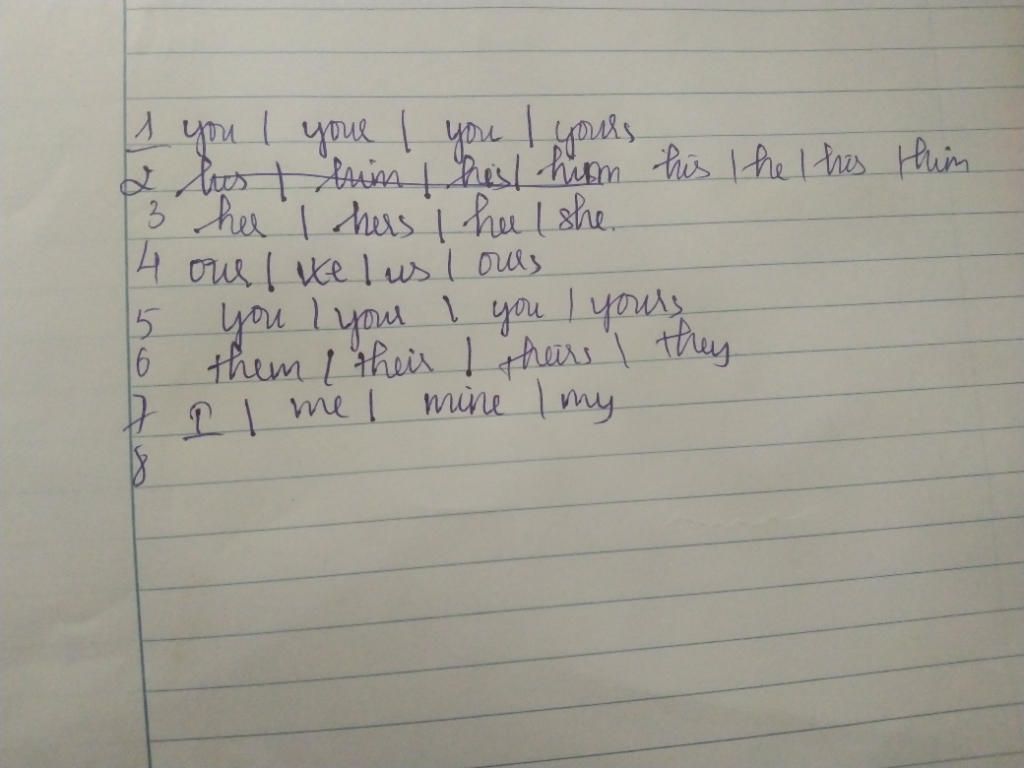 1 you | your | you | yours
2 his | him | his | him his | he | his | him
3 her | hers | her | she.
4 our | we | us | ours
5 you | your | you | yours
6 them | their | theirs | they
7 I | me | mine | my
8